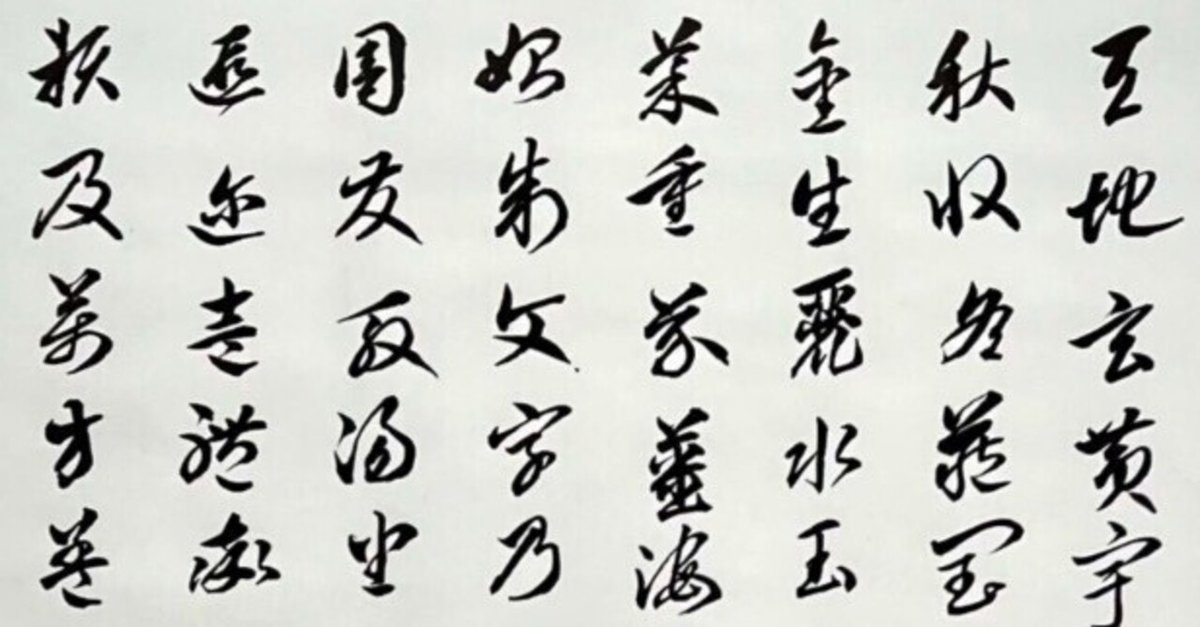 天地玄黄宇
秋收冬藏閏
金生麗水玉
菜重芥薑海
始制文字乃
周发殷湯坐
遐迩壹體率
賴及萬方蓋